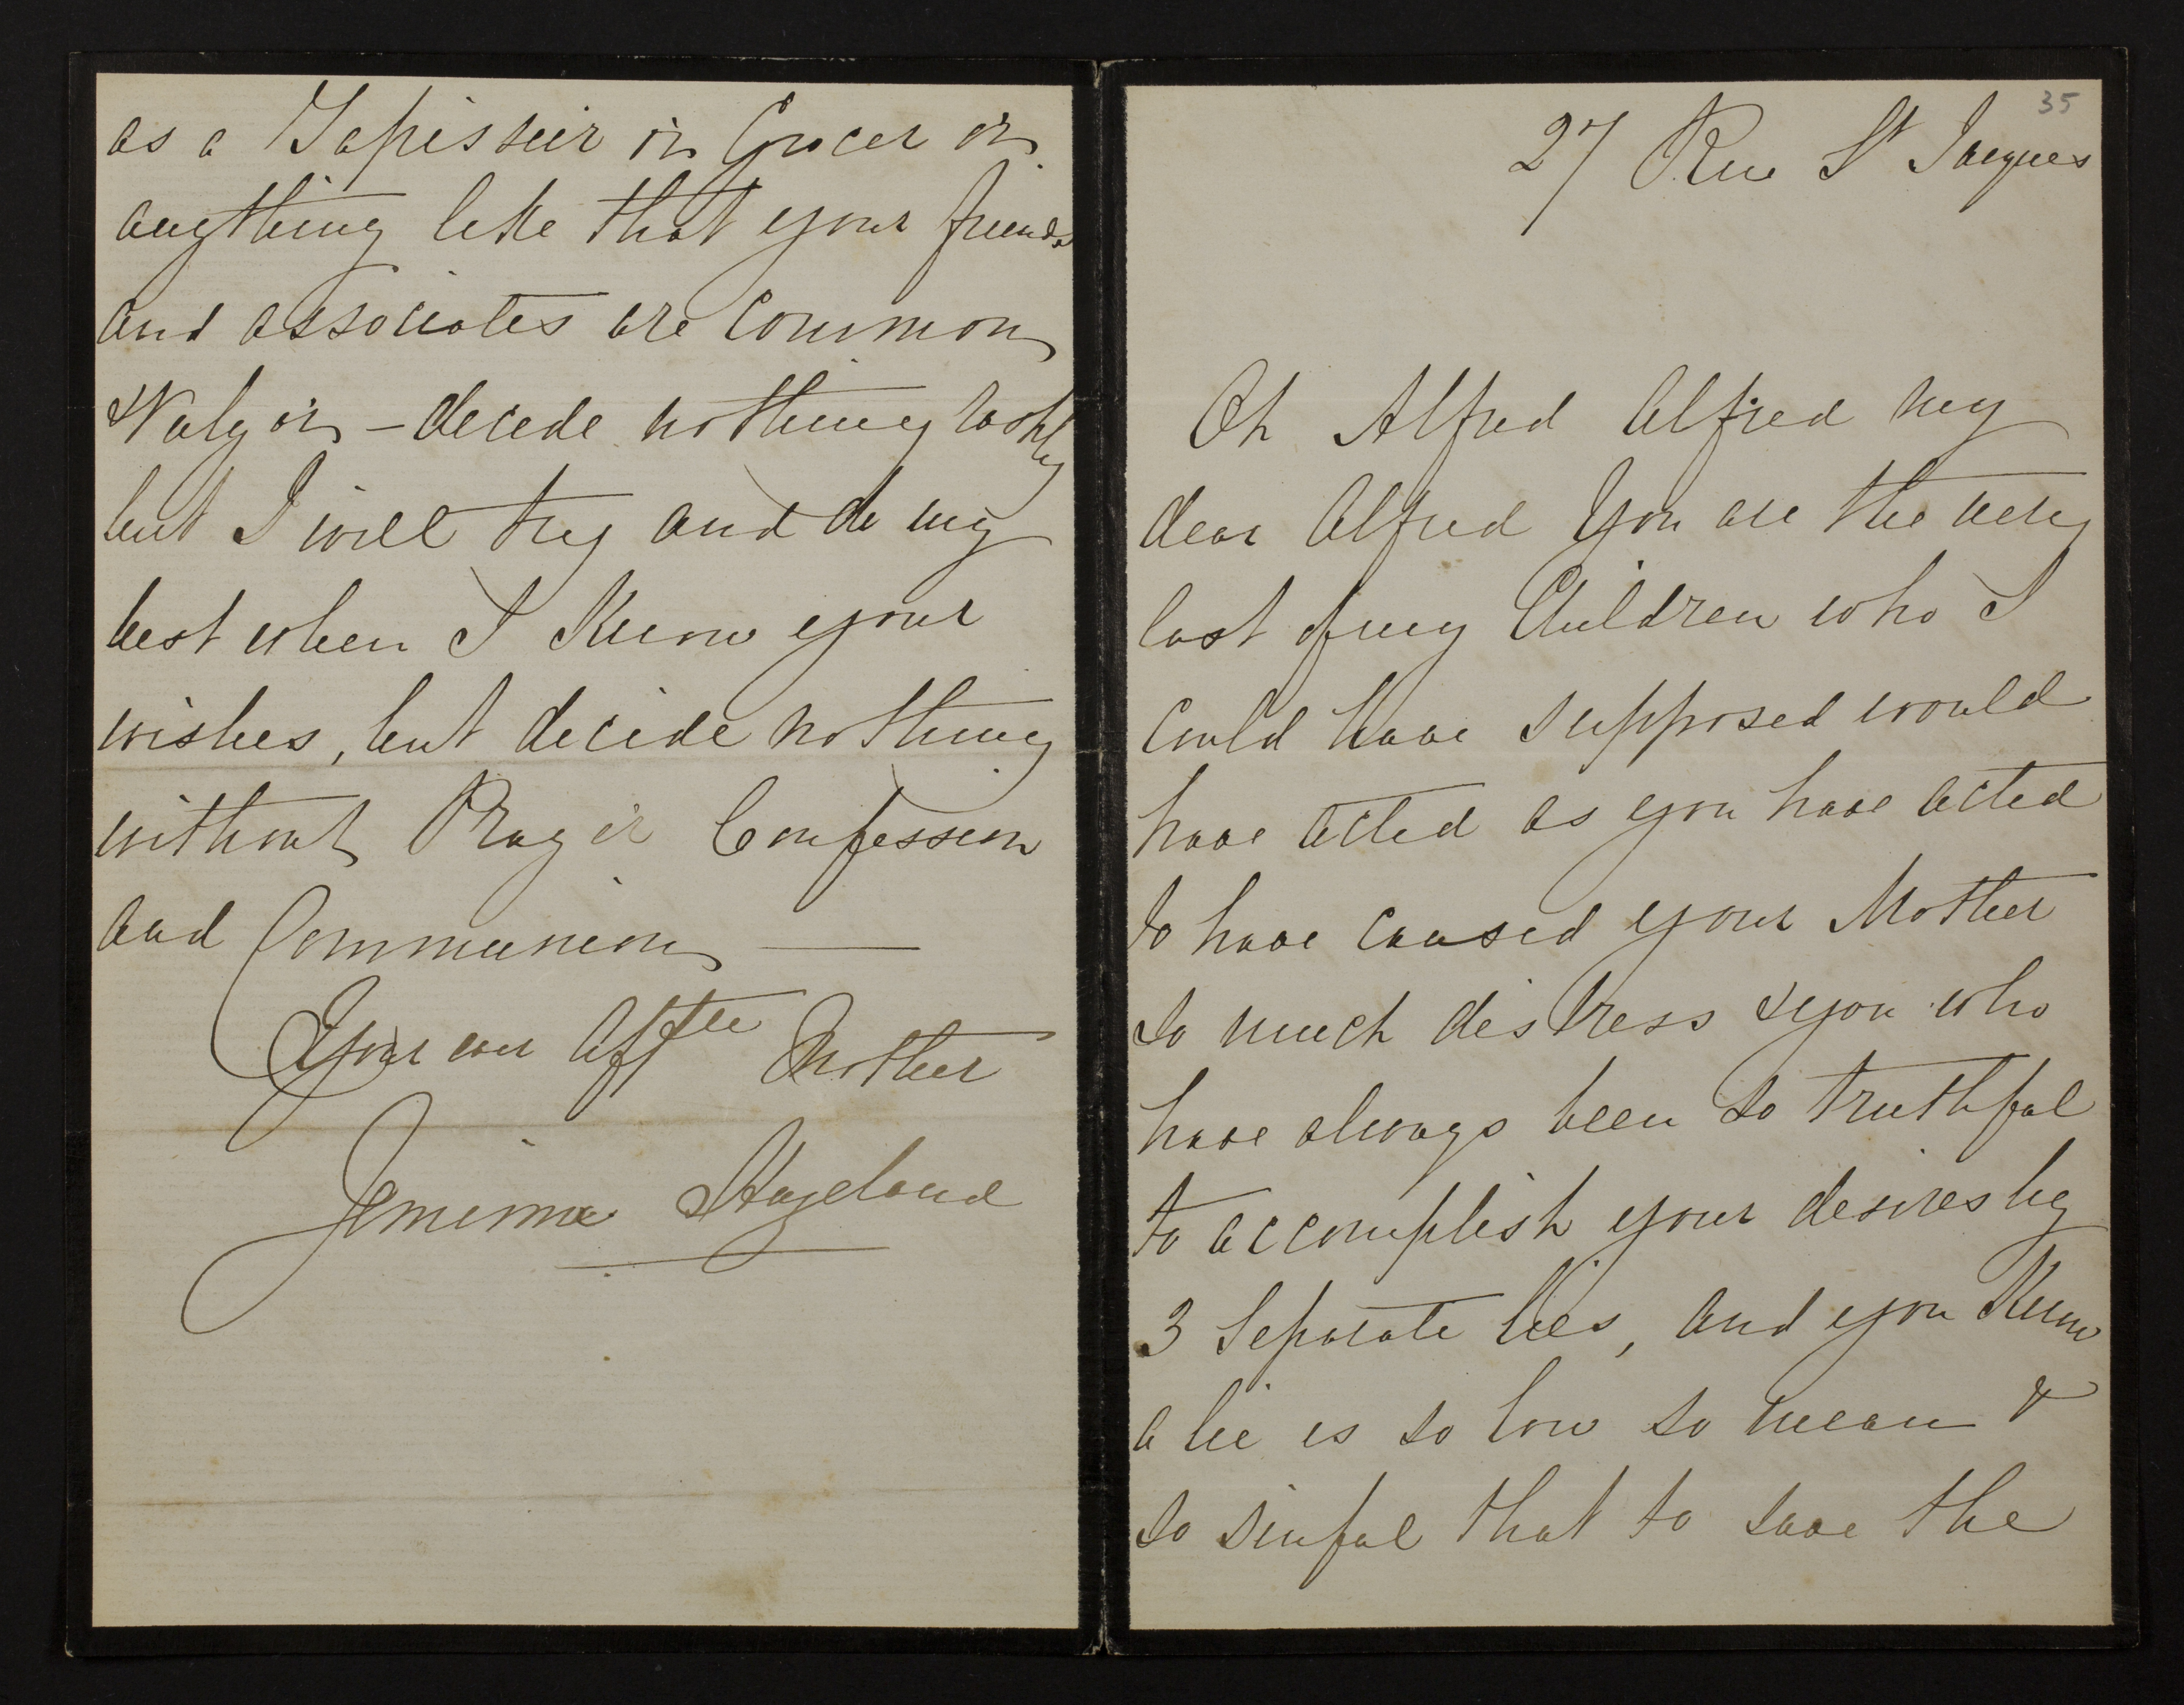 35
27 Rue St Jacques
Oh Alfred Alfred my
dear Alfred You are the very
last of my Children who I
could have supposed would
have acted as you have acted
to have caused your Mother
so much distress & you who
have always been so truthful
to accomplish your desires by
3 Separate lies, and you Know
a lie is so low so mean &
so sinful that to save the
as a Tapissier or Grocer or
anything like that your friends
and associates are common
& Vulgar - decide nothing rashly
but I will try and do my
best when I Know your
wishes, but decide nothing
without Prayer Confession
and Communion —
Your own Affte Mother
Jemima Hazeland